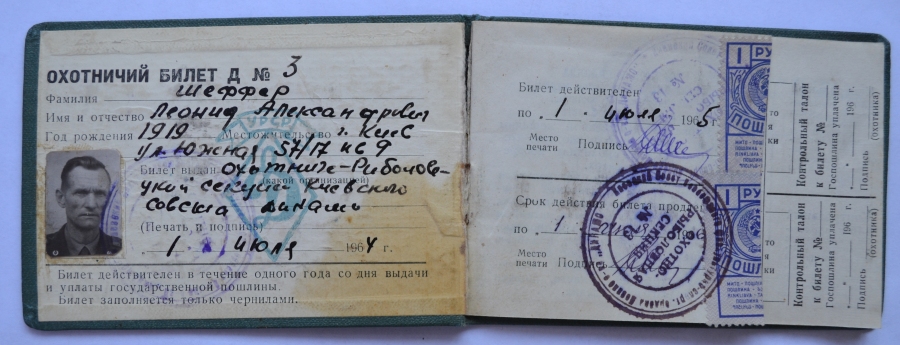 ОХОТНИЧИЙ БИЛЕТ Д № 3
Фамилия Шеффер
Имя и отчество Леонид Александрович
Год рождения 1919 Местожительство г. Киев
ул Южная 57/17 кв 9
Билет выдан Охотниче-Рыболов-
(какой организацией)
ецкой секцией Киевского
совета Динамо
(Печать и подпись)
1 июля 1964 г.
Билет действителен в течение одного года со дня выдачи
и уплаты государственной пошлины.
Билет заполняется только чернилами.
Билет действителен
по 1 июля 1965 г.
Место
печати
Подпись
Срок действия билета продлен
по 1
Место
печати
Подпись
ОХОТНО
РЫБОЛОВНАЯ
СЕКЦИЯ
№ 13
1 РУ
ПОШЛИ
1 РУ
ПОШ
Контрольный талон
к билету №
Госпошлина уплачена
" " 196
Подпись
(охотника)
Контрольный талон
к билету №
Госпошлина уплачена
" " 196
Подпись
(охотника)